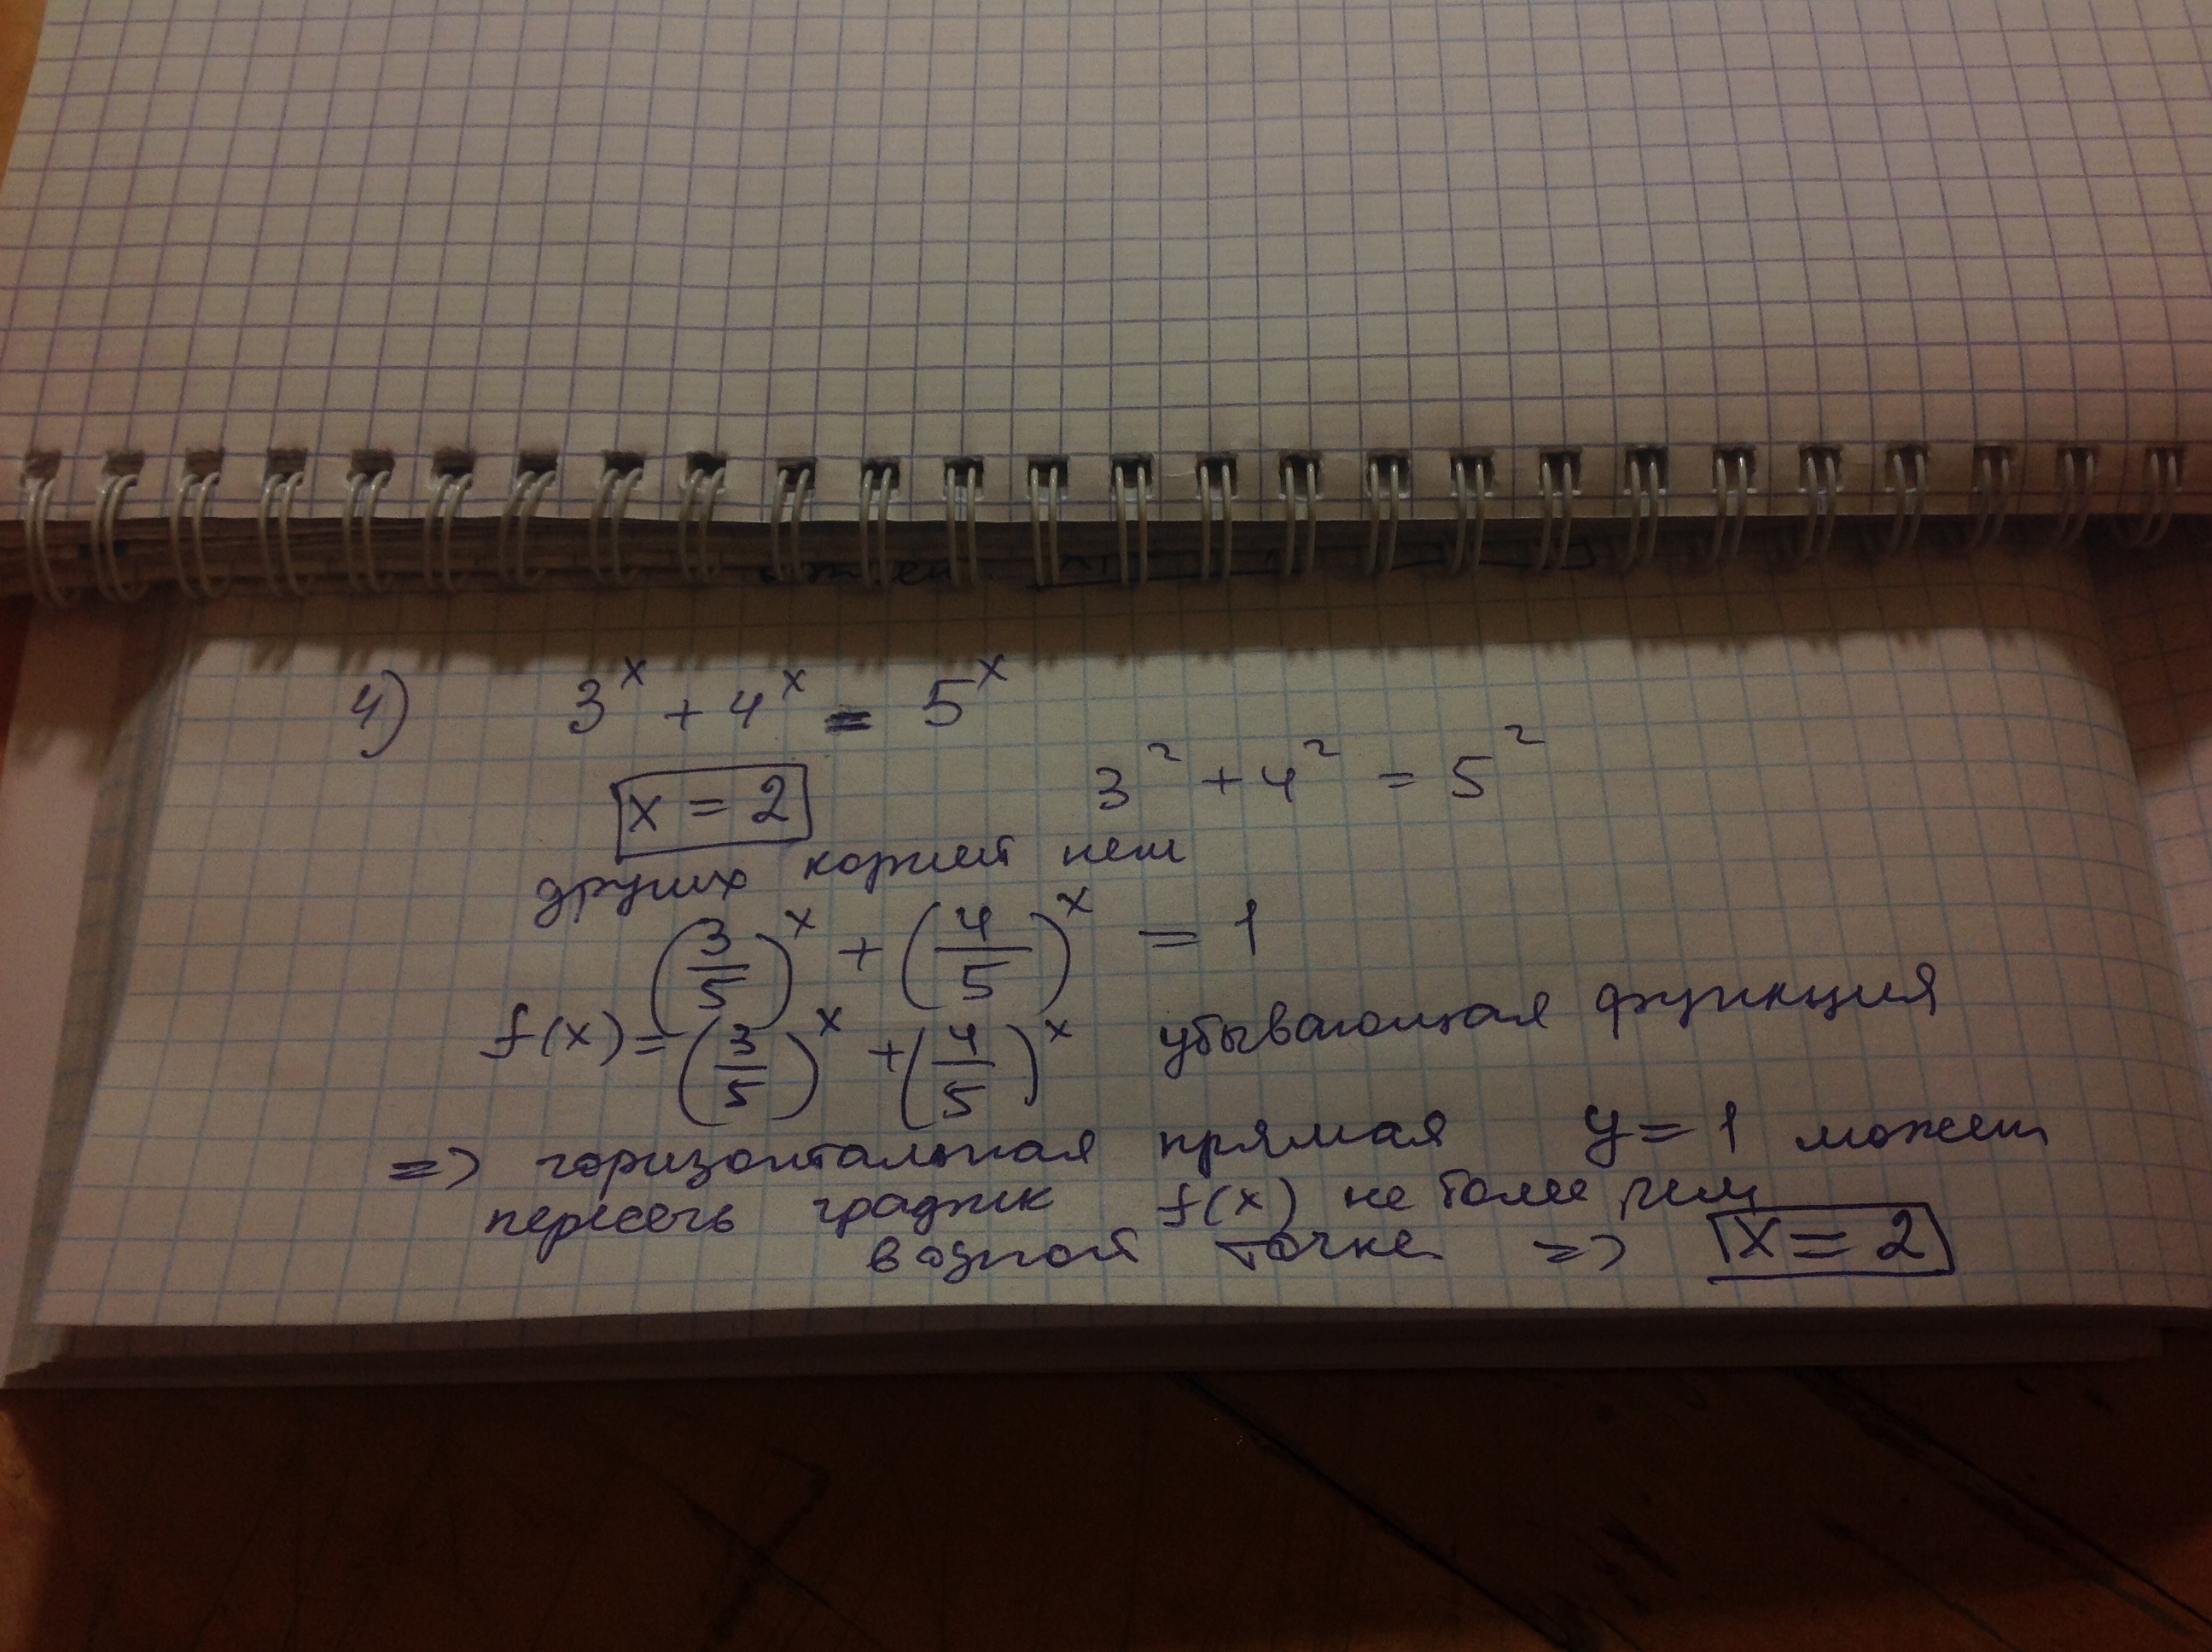 4) 3^x + 4^x = 5^x
x = 2 3^2 + 4^2 = 5^2
других корней нет
(3/5)^x + (4/5)^x = 1
f(x) = (3/5)^x + (4/5)^x убывающая функция
=> горизонтальная прямая y = 1 может
пересечь график f(x) не более чем
в одной точке => x = 2